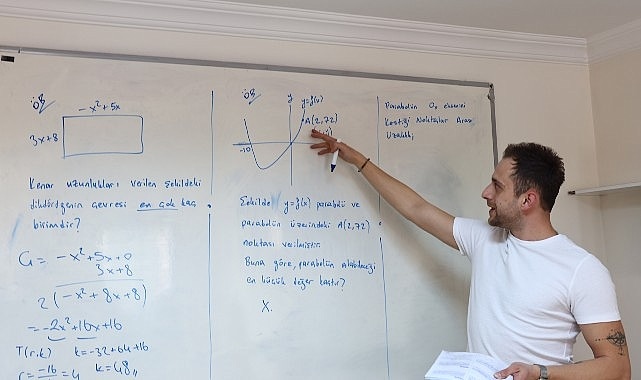 ÖR/
-x²+5x
3x+8
Kenar uzunlukları verilen şekildeki
dikdörtgenin çevresi en çok kaç
birimdir?
Ç = -x²+5x+0
3x+8
2(-x²+8x+8)
= -2x²+16x+16
T(r,k) k=-32+64+16
r=-16/-4=4 k=48//
ÖR/
y
y=f(x)
A(2,72)
-10
Şekilde y=f(x) parabolü ve
parabolün üzerindeki A(2,72)
noktası verilmiştir.
Buna göre, parabolün alabileceği
en küçük değer kaçtır?
X.
Parabolün Ox eksenini
Kestiği Noktalar Arası
Uzaklık;